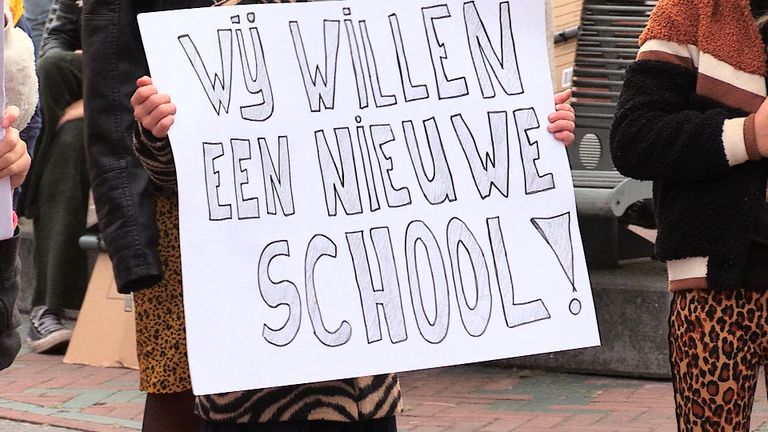 WIJ WILLEN
EEN NIEUWE
SCHOOL!